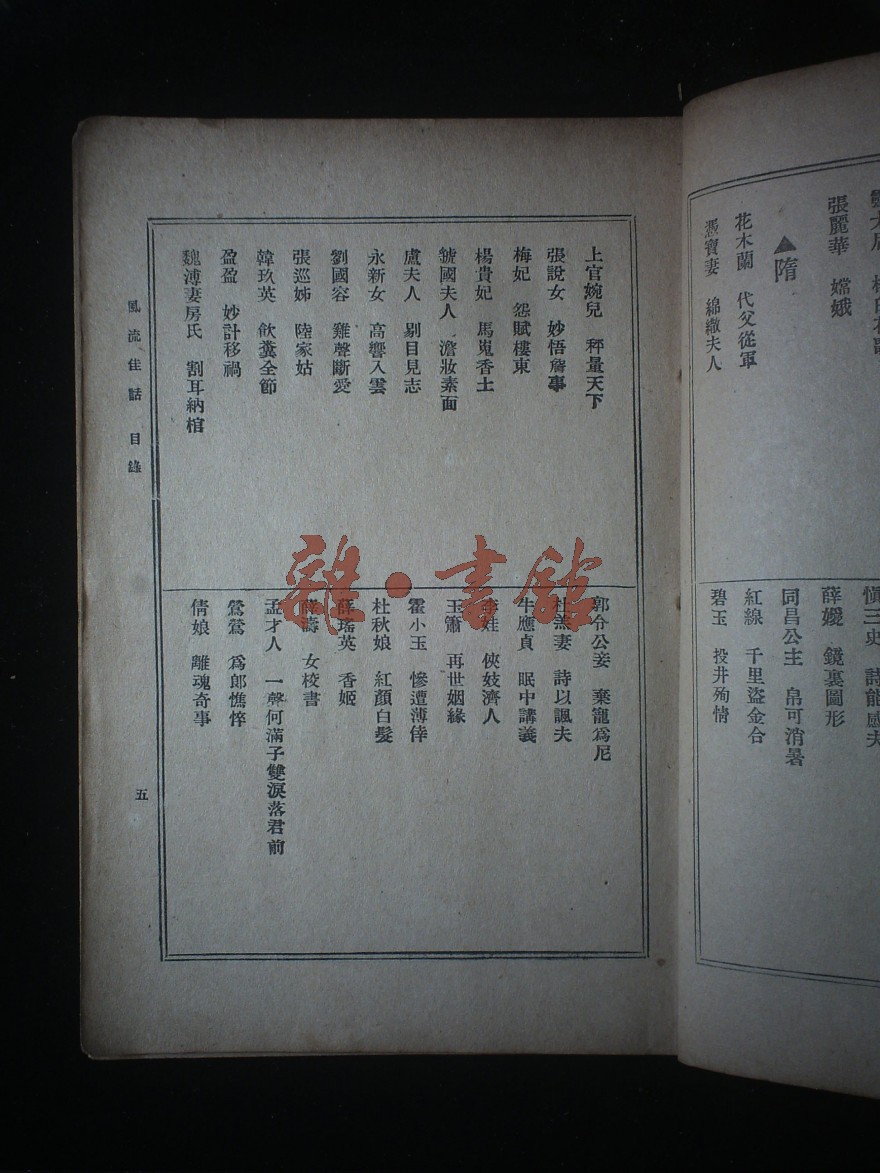 張麗華　嫦娥
▲隋
花木蘭　代父從軍
馮寶妻　綿繖夫人
慎三史　詩能感夫
薛媛　鏡裏圖形
同昌公主　帛可消暑
紅線　千里盜金合
碧玉　投井殉情
上官婉兒　秤量天下
張說女　妙悟詹事
梅妃　怨賦樓東
楊貴妃　馬嵬香土
虢國夫人　澹妝素面
盧夫人　剔目見志
永新女　高響入雲
劉國容　雞聲斷愛
張巡姊　陸家姑
韓玖英　飲糞全節
盈盈　妙計移禍
魏溥妻房氏　割耳納棺
郭令公妾　棄寵爲尼
杜羔妻　詩以諷夫
牛應貞　眠中講義
李娃　俠妓濟人
玉簫　再世姻緣
霍小玉　慘遭薄倖
杜秋娘　紅顏白髮
薛瑤英　香姬
薛濤　女校書
孟才人　一聲何滿子雙淚落君前
鶯鶯　爲郎憔悴
倩娘　離魂奇事
風流佳話　目錄
五
雜·書館